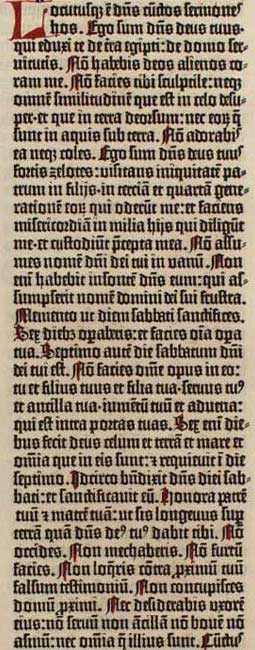 Locutusq̄ ē dn̄s cūctos sermones
hos. Ego sum dn̄s deus tuus·
qui eduxi te de t̄ra egipti: de domo ser-
vitutis. Nō habebis deos alienos co-
ram me. Nō facies tibi sculptile: neqz
omnē similitudinē que est in celo desu-
per· et que in terra deorsum: nec eoꝝ q̄
sunt in aquis sub terra. Nō adorabis
ea neqz coles. Ego sum dn̄s deus tuus
fortis zelotes: visitans iniquitatē pa-
trum in filijs· in terciā et quartā gene-
rationē eoꝝ qui oderūt me: et faciens
misericordiā in milia hijs qui diligūt
me· et custodiūt p̄cepta mea. Nō assu-
mes nomē dn̄i dei tui in vanū. Non
enī habebit insontē dn̄s eum: qui as-
sumpserit nomē domini dei sui frustra.
Memento ut diem sabbati sanctifices.
Sex diebz oꝑaberis: et facies oīa oꝑa
tua. Septimo autē die sabbatum dn̄i
dei tui est. Nō facies om̄e opus in eo:
tu et filius tuus et filia tua· servus tuꝰ
et ancilla tua· iumētū tuū et advena:
qui est intra portas tuas. Sex enī die-
bus fecit deus celum et terrā et mare et
om̄ia que in eis sunt: ⁊ requievit ī die
septimo. Idcirco bn̄dixit dn̄s diei sab-
bati: et sanctificavit eū. Honora patrē
tuū ⁊ matrē tuā: ut sis longevus sup̄
terrā quā dn̄s deꝰ tuꝰ dabit tibi. Nō
occides. Non mechaberis. Nō furtū
facies. Non loq̄ris cōtra ꝓximū tuū
falsum testimoniū. Non concupisces
domū ꝓximi. Nec desiderabis uxorē
eius: nō servū non ancillā nō bovē nō
asinū: nec om̄ia q̄ illius sunt. Cūctus